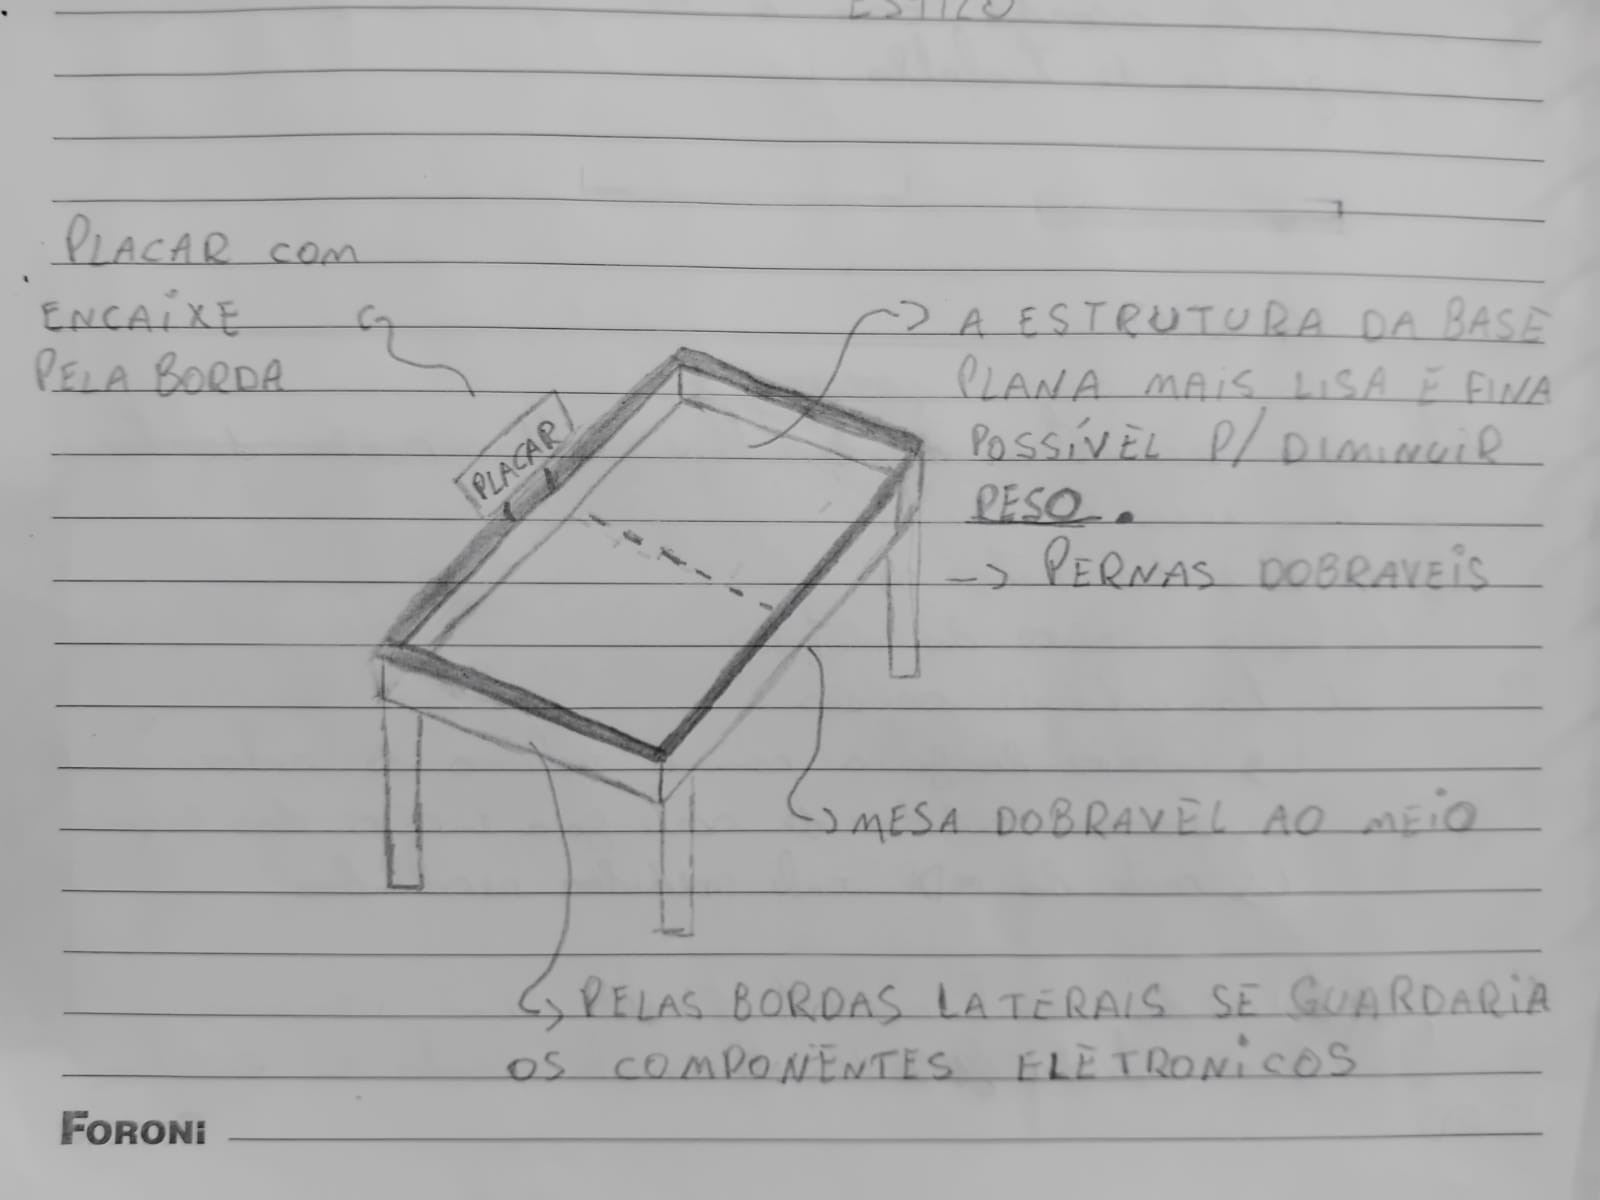 PLACAR com
ENCAIXE
PELA BORDA
PLACAR
A ESTRUTURA DA BASE
PLANA MAIS LISA E FINA
POSSÍVEL P/ DIMINUIR
PESO.
-> PERNAS DOBRAVEIS
MESA DOBRAVEL AO MEIO
PELAS BORDAS LATERAIS SE GUARDARIA
OS COMPONENTES ELETRONICOS
FORONI